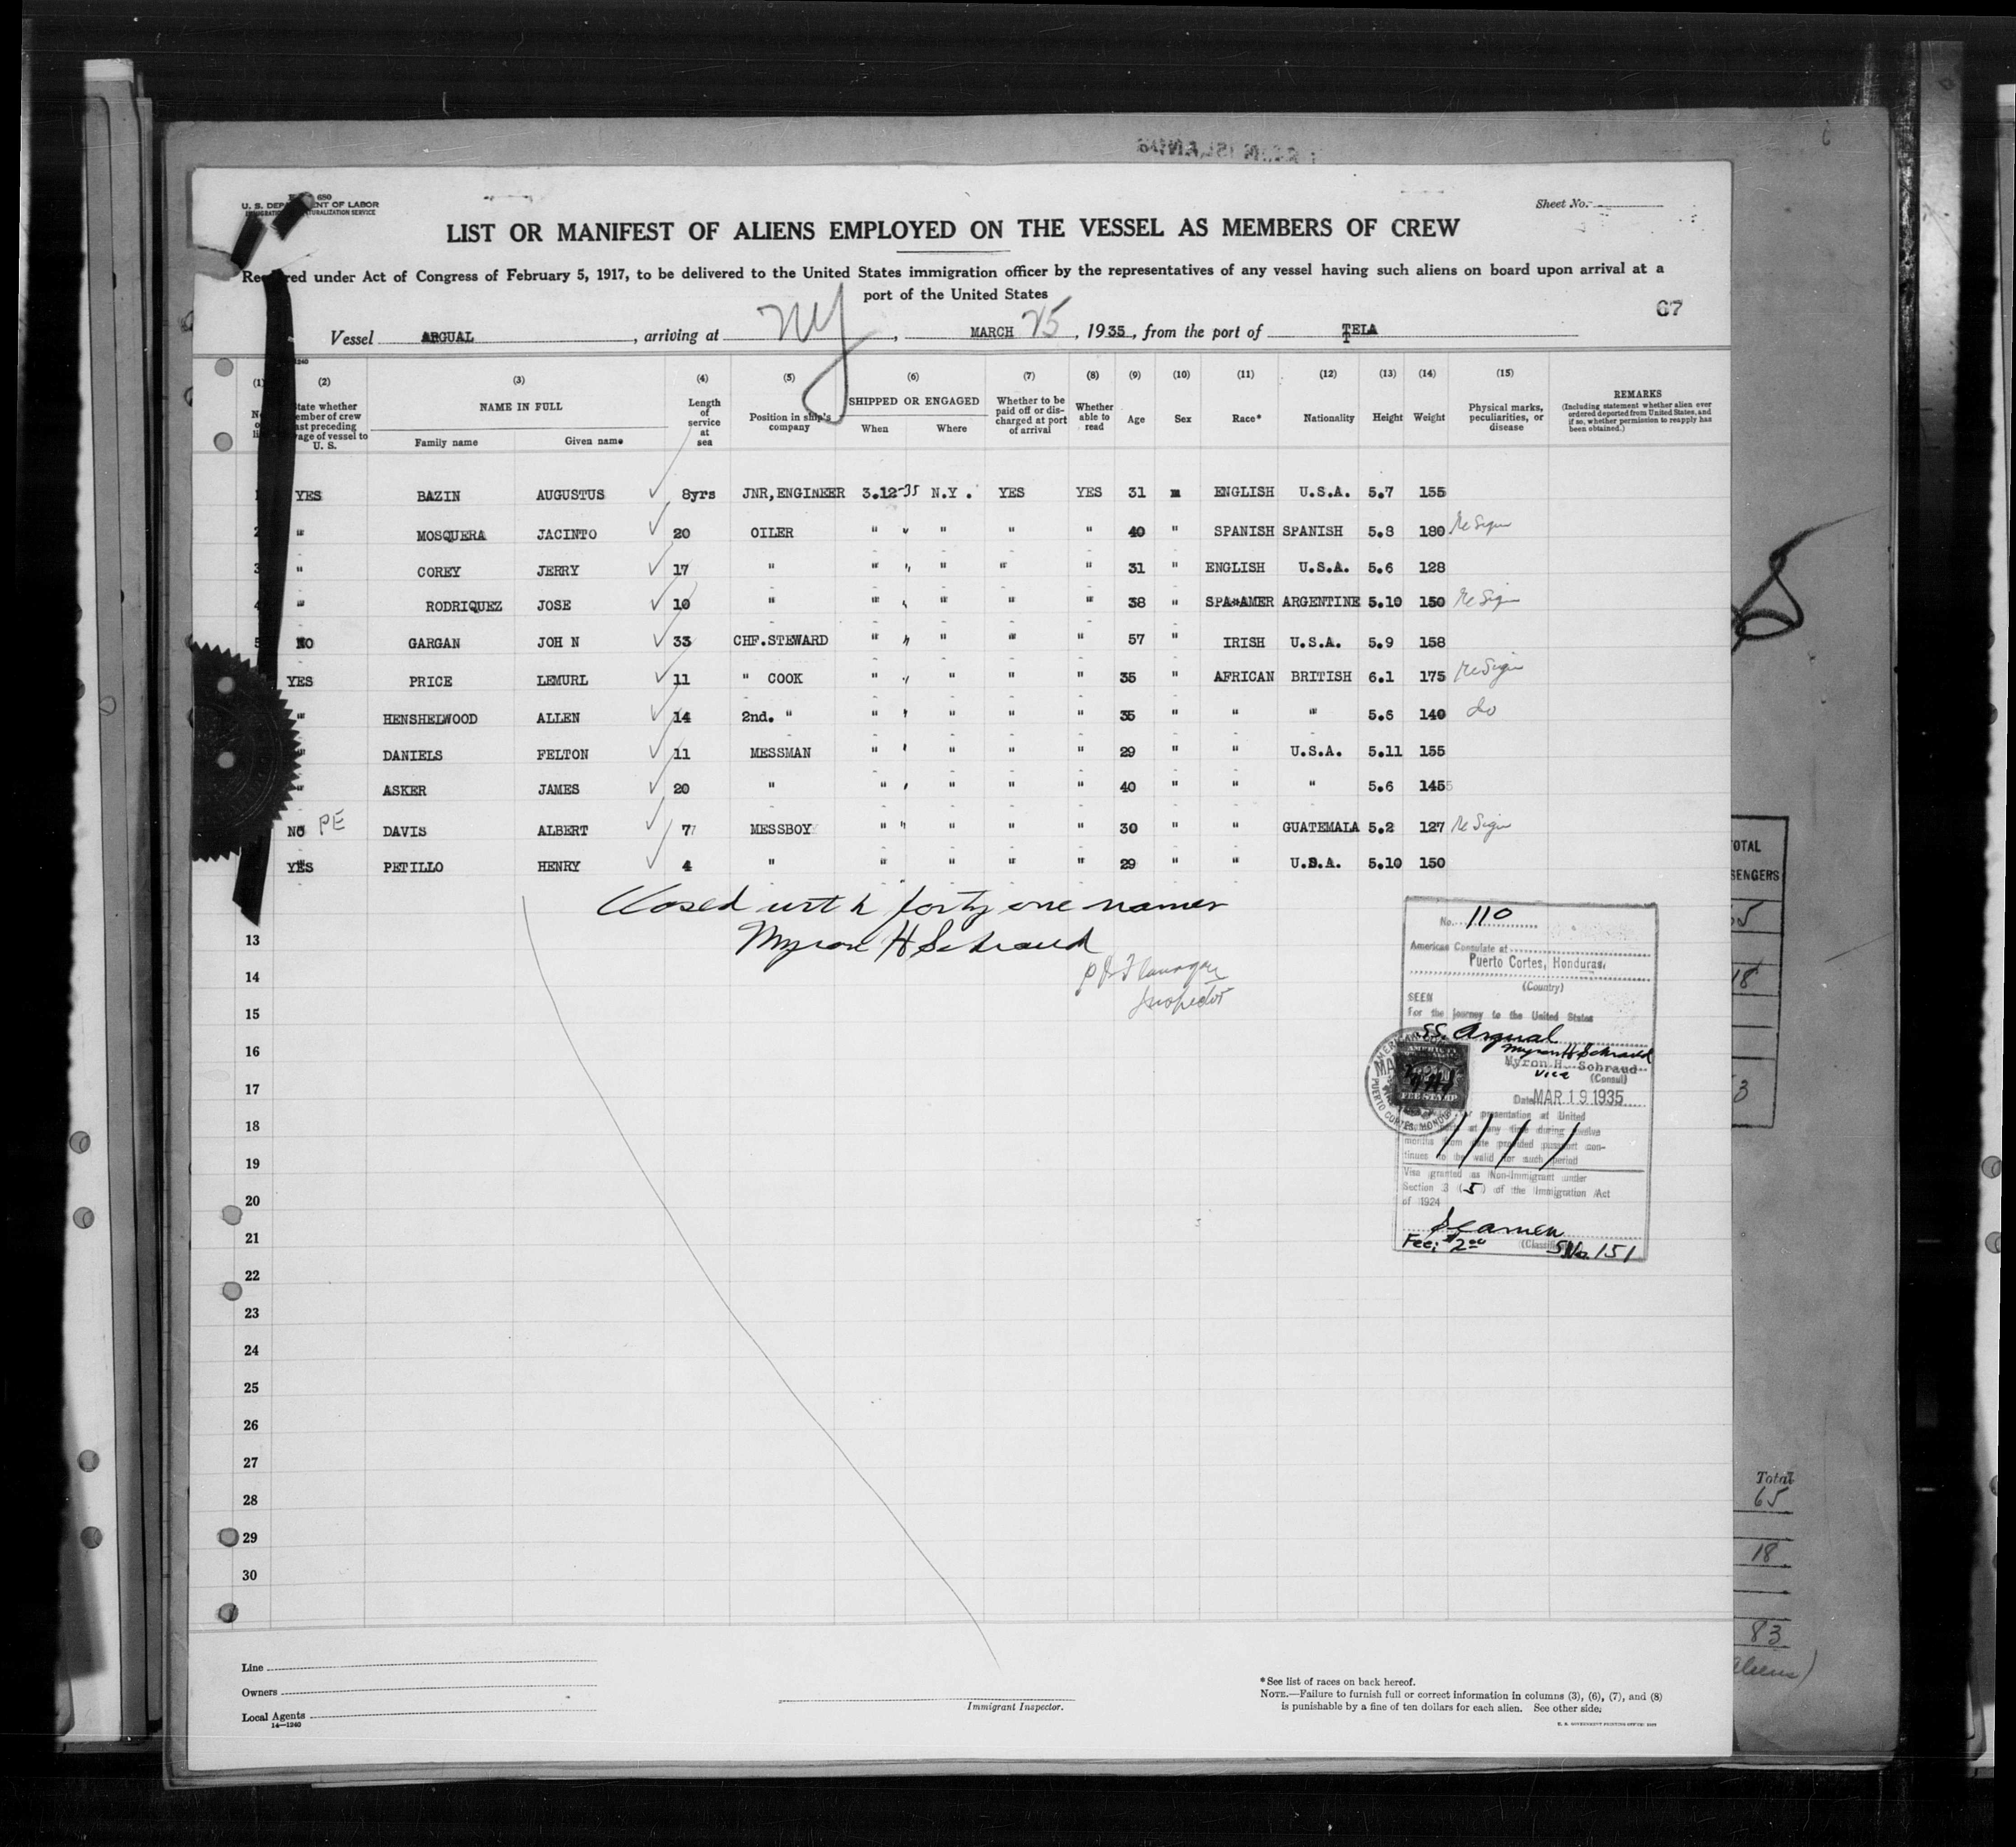 680
U. S. DEPARTMENT OF LABOR
Sheet No.
LIST OR MANIFEST OF ALIENS EMPLOYED ON THE VESSEL AS MEMBERS OF CREW
Required under Act of Congress of February 5, 1917, to be delivered to the United States immigration officer by the representatives of any vessel having such aliens on board upon arrival at a
port of the United States
67
Vessel ARGUAL, arriving at NY, MARCH 25, 1935, from the port of TELA
(1) (2) (3) (4) (5) (6) (7) (8) (9) (10) (11) (12) (13) (14) (15)
State whether member of crew last preceding voyage of vessel to U. S.
NAME IN FULL
Family name Given name
Length of service at sea
Position in ship's company
SHIPPED OR ENGAGED
When Where
Whether to be paid off or discharged at port of arrival
Whether able to read
Age Sex Race* Nationality Height Weight
Physical marks, peculiarities, or disease
REMARKS
(Including statement whether alien ever ordered deported from United States, and if so, whether permission to reapply has been obtained.)
1 YES BAZIN AUGUSTUS 8yrs JNR,ENGINEER 3.12-35 N.Y. YES YES 31 m ENGLISH U.S.A. 5.7 155
2 " MOSQUERA JACINTO 20 OILER " " " " " 40 " SPANISH SPANISH 5.8 180 ReSign
3 " COREY JERRY 17 " " " " " " 31 " ENGLISH U.S.A. 5.6 128
4 " RODRIQUEZ JOSE 10 " " " " " " 38 " SPA*AMER ARGENTINE 5.10 150 ReSign
5 NO GARGAN JOH N 33 CHF.STEWARD " " " " " 57 " IRISH U.S.A. 5.9 158
YES PRICE LEMURL 11 " COOK " " " " " 35 " AFRICAN BRITISH 6.1 175 ReSign
" HENSHELWOOD ALLEN 14 2nd. " " " " " " 35 " " " 5.6 140 do
" DANIELS FELTON 11 MESSMAN " " " " " 29 " " U.S.A. 5.11 155
" ASKER JAMES 20 " " " " " " 40 " " " 5.6 145
NO PE DAVIS ALBERT 7 MESSBOY " " " " " 30 " " GUATEMALA 5.2 127 ReSign
YES PETILLO HENRY 4 " " " " " 29 " " U.S.A. 5.10 150
Closed with forty one names
Myron H Schraud
Inspector
13
14
15
16
17
18
19
20
21
22
23
24
25
26
27
28
29
30
No. 110
American Consulate at
Puerto Cortes, Honduras.
(Country)
SEEN
For the journey to the United States
SS. Argual
Myron H Schraud
Myron H. Schraud
Vice (Consul)
Date MAR 19 1935
presentation at United
at any time during twelve
months from date provided passport con-
tinues to be valid for such period
Visa granted as Non-Immigrant under
Section 3 (5) of the Immigration Act
of 1924
Seamen
Fee; $2.00 SNo. 151
FEE STAMP
Line
Owners
Local Agents
14—1240
Immigrant Inspector.
*See list of races on back hereof.
NOTE.—Failure to furnish full or correct information in columns (3), (6), (7), and (8)
is punishable by a fine of ten dollars for each alien. See other side.
TOTAL
18
Total
65
18
83